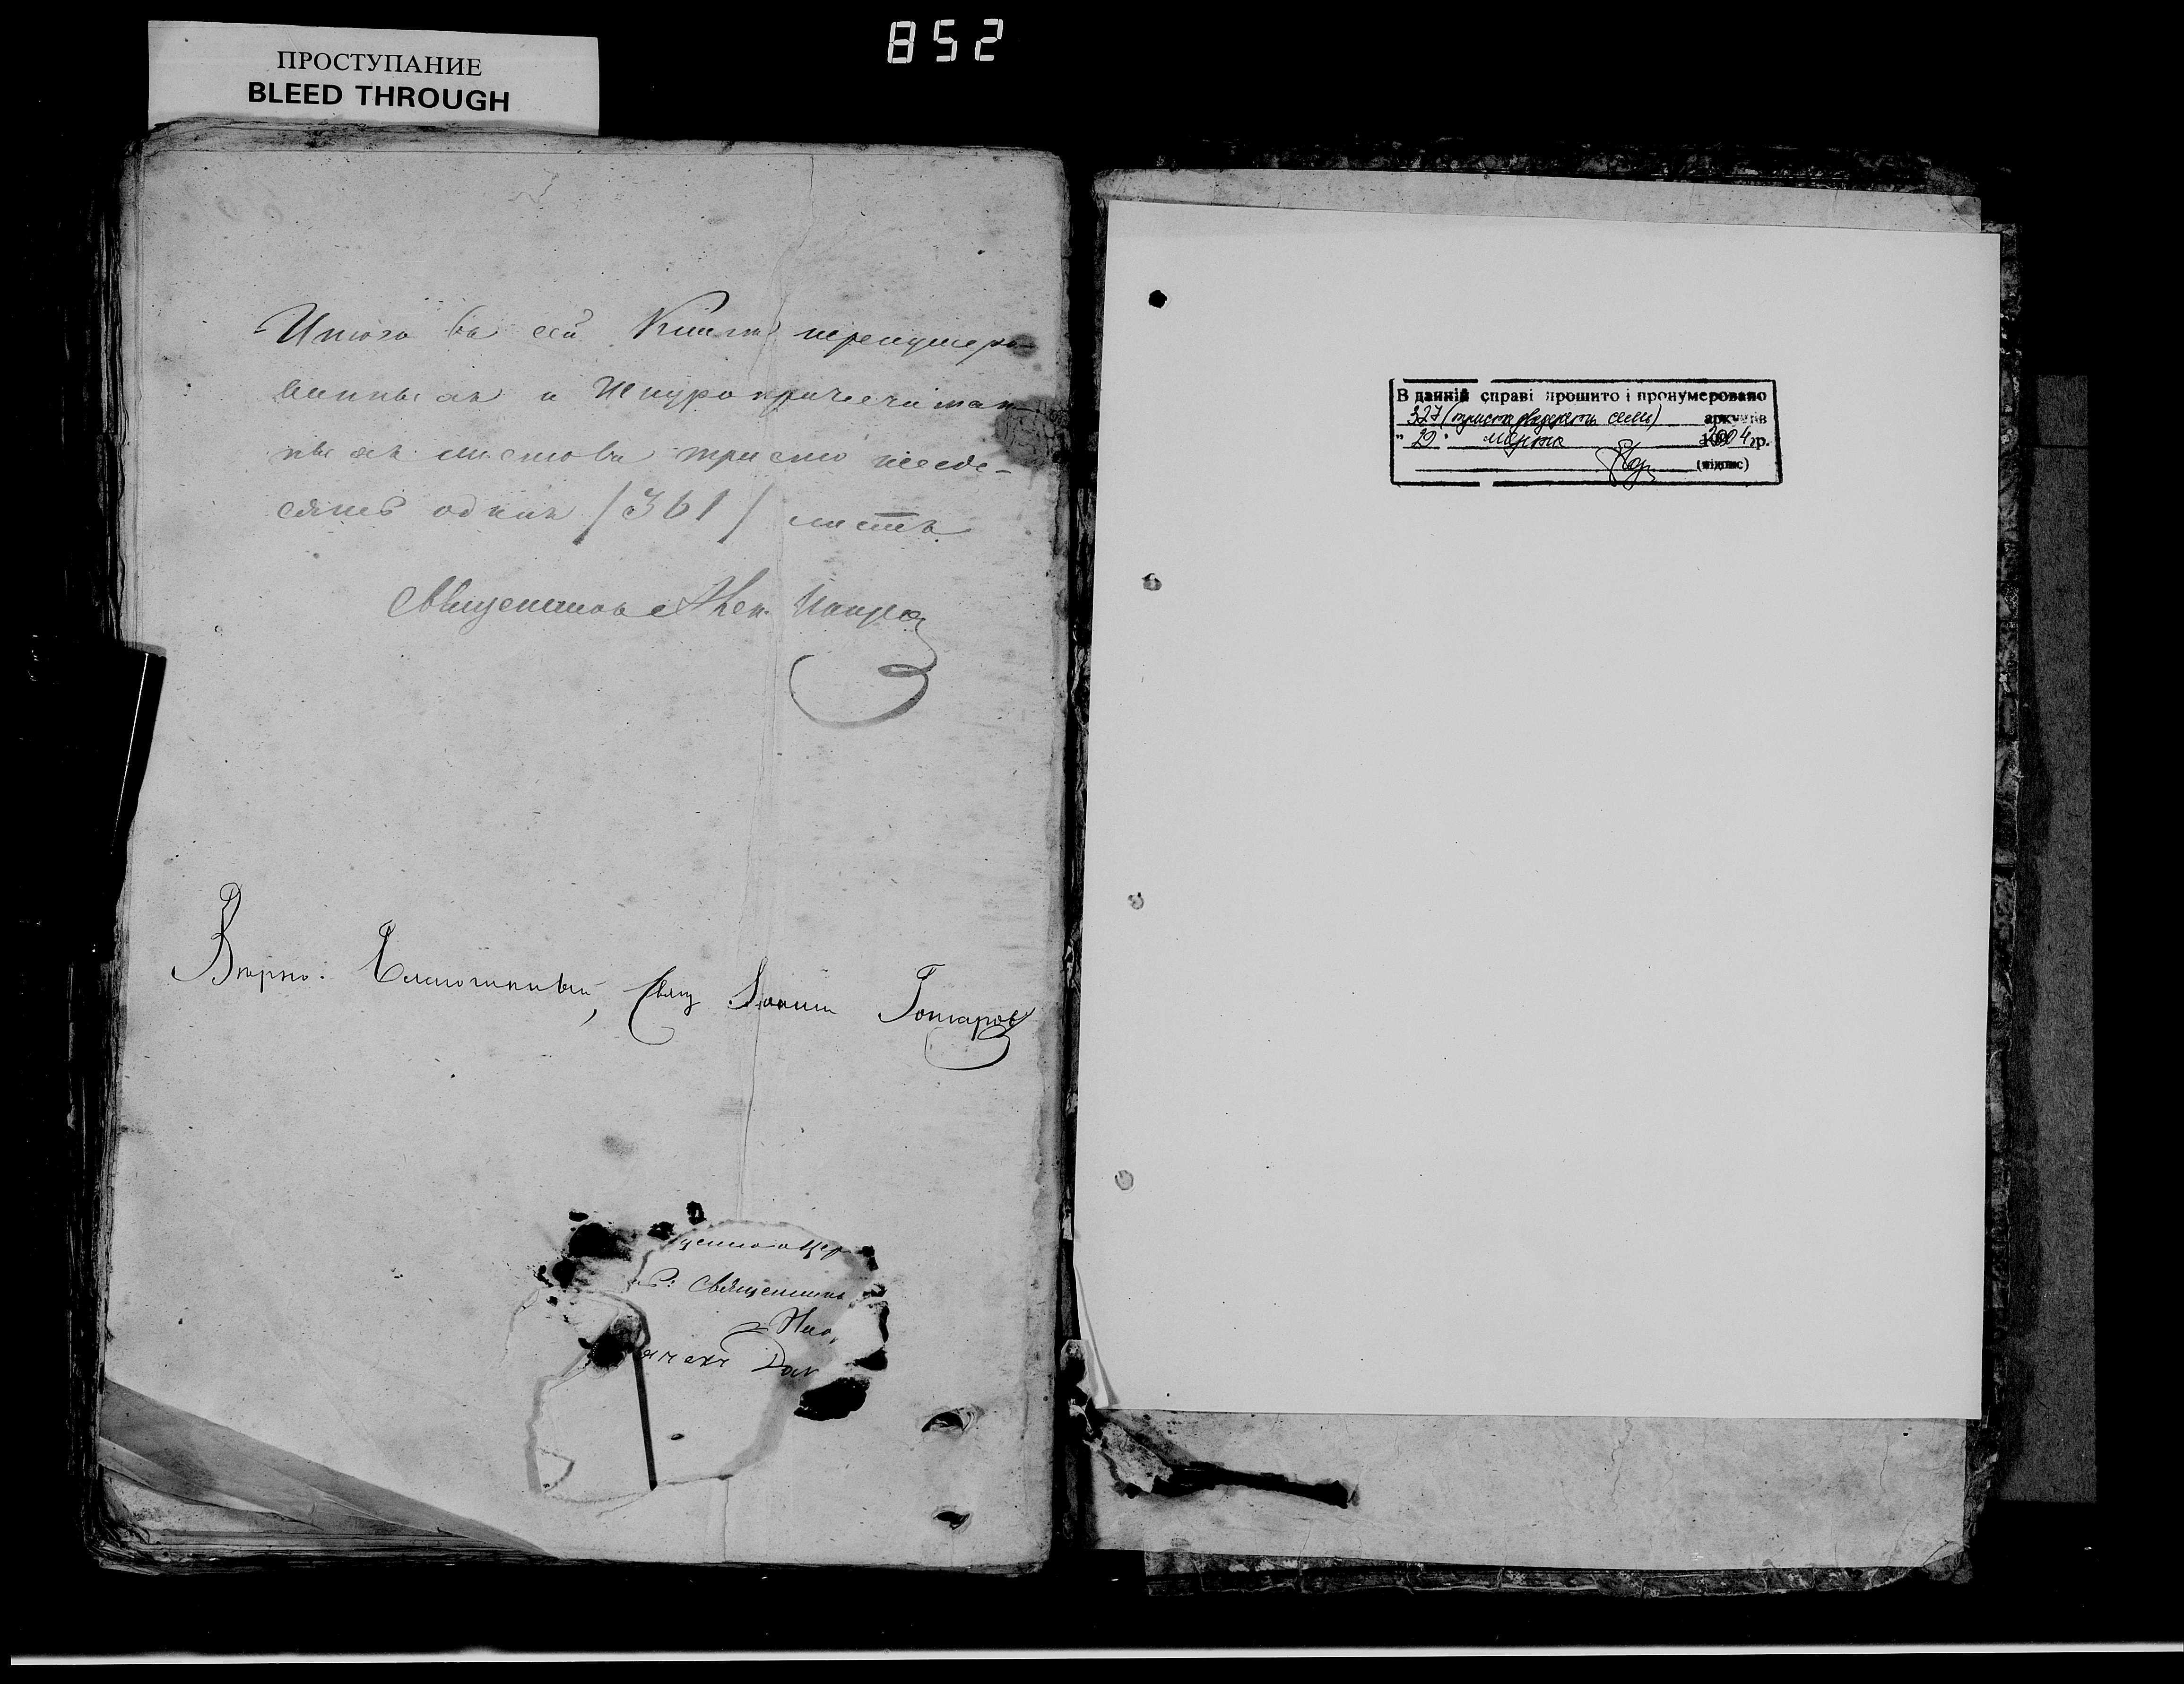 ПРОСТУПАНИЕ
BLEED THROUGH
852
Итого въ сей Книгѣ перенумеро-
ванныхъ и Шнуроприпечатан-
ныхъ листовъ триста шесде-
сятъ одинъ /361/ листъ
Священникъ Алек.
Вѣрно: Благочинный, Свящ Іоаннъ Гончаровъ
Священникъ
В данній справі прошито і пронумеровано
327 (триста двадцать семь) аркушів
" 29 " марта 2004 р.
(підпис)